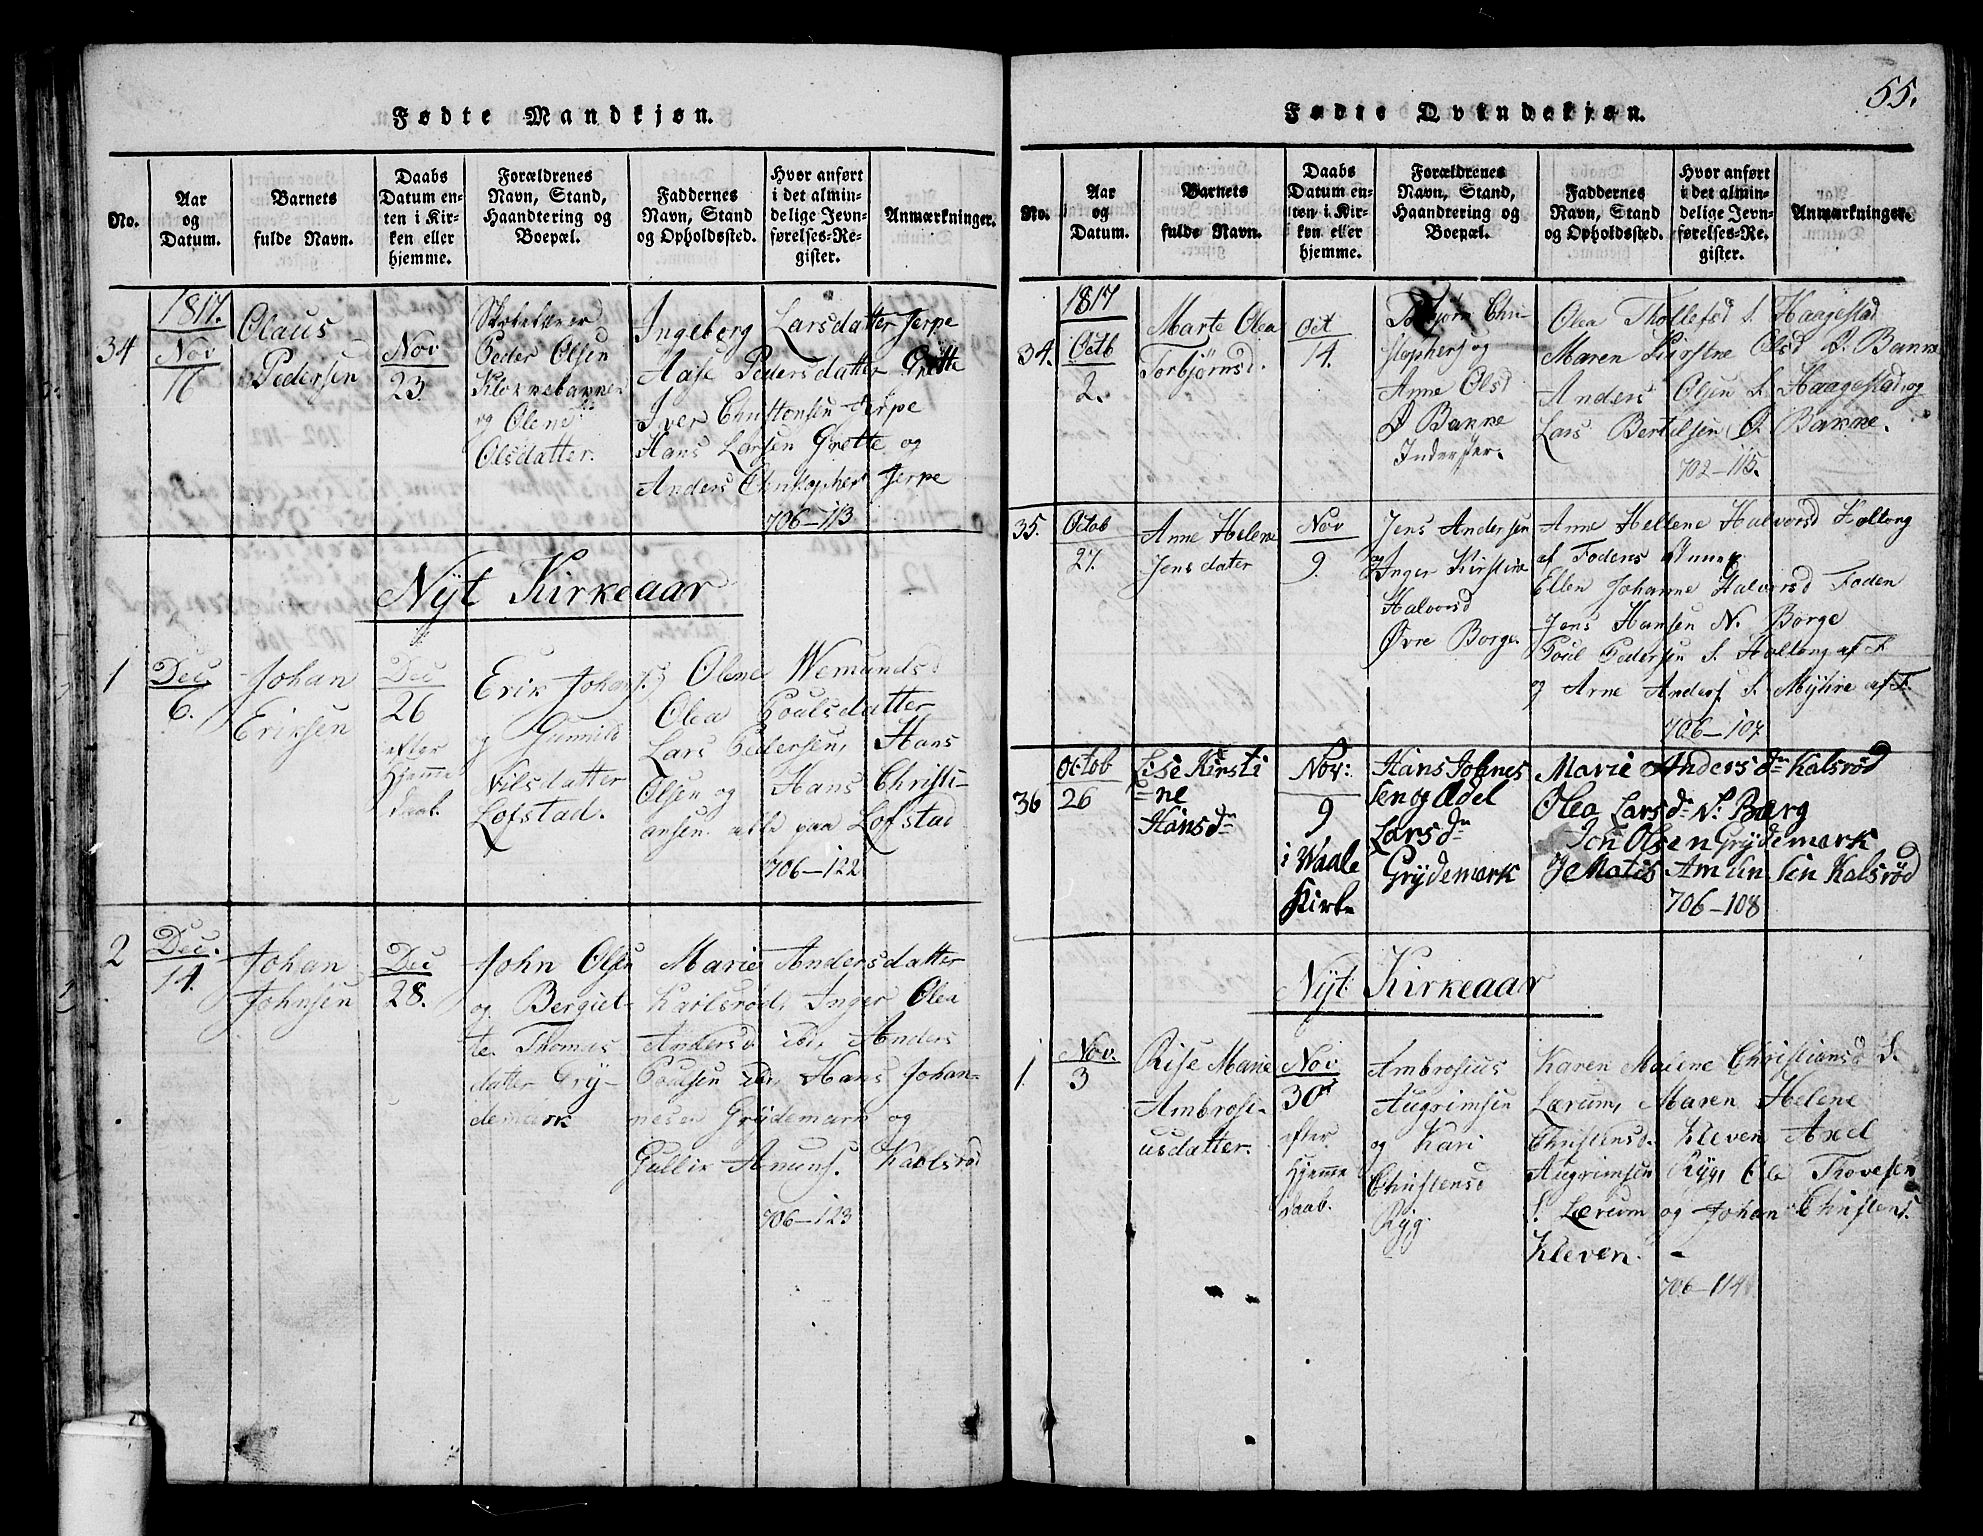 Fødte Mandkjøn.
No.
Aar
og
Datum.
Barnets
fulde Navn.
Daabs
Datum en-
ten i Kir-
ken eller
hjemme.
Forældrenes
Navn, Stand,
Haandtering og
Boepæl.
Faddernes
Navn, Stand
og Opholdssted.
Hvor anført
i det almin-
delige Jevn-
førelses-Re-
gister.
Anmærkninger.
34
1817.
Nov
16
Olaus
Pedersen
Nov
23
Skolelærer
Peder Olsen
Klokkebakken
og Olene
Olsdatter.
Ingeberg Larsdatter Jerpe
Aase Pedersdatter Grette
Iver Jerpe
Hans Larsen Grette og
Anders Christophers Jerpe
706-113
Nÿt Kirkeaar
1
Dec
6.
Johan
Eriksen
Dec
26
efter
hjemme
daab.
Erik Johans.
og Gunnild
Nilsdatter
Lofstad.
Olene Wemunds
Olea Poulsdatter
Lars Pedersen, Hans
Olsen og Hans Christi-
ansen alle paa Lofstad
706-122
2
Dec.
14.
Johan
Johnsen
Dec
28.
John Olsen
og Bergiet-
te Thomas
datter Grÿ-
demark
Marie Andersdatter
Karlsrød, Inger Olea
Andersd ibd, Anders
Poulsen ibd, Hans Johan-
nesen Grÿdemark og
Gullik Amunds. Kaalsrød
706-123
55.
Fødte Qvindekjøn.
No.
Aar
og
Datum.
Barnets
fulde Navn.
Daabs
Datum en-
ten i Kir-
ken eller
hjemme.
Forældrenes
Navn, Stand,
Haandtering og
Boepæl.
Faddernes
Navn, Stand
og Opholdssted.
Hvor anført
i det almin-
delige Jevn-
førelses-Re-
gister.
Anmærkninger.
34.
1817
Octb
2.
Marte Olea
Torbjörnsd.
Oct
14.
Torbjörn Chri-
stophers og
Anne Olsd
Ø Bakke
Inderster.
Olea Thollefsd S. Haagestad
Maren Kirstne Olsd Ø. Bakke
Anders Olsen S. Haagestad og
Lars Bertelsen Ø. Bakke.
702-115.
35.
Octob
27.
Anne Helene
Jensdatter
Nov
9.
Jens Andersen
og Inger Kirstine
Halvorsd
Øvre Borge.
Anne Hellene Halvorsd Holtong
af Fodens
Ellen Johanne Halvorsd Foden
Jens Hansen N. Borge
Poul Pedersen S. Holtong af F
og Arne Anders. S. Mÿhre af F.
706-107
36
Octob
26
Lise Kirsti
ne
Hansdr
Nov:
9
i Waale
Kirke
Hans Johnes
sen og Edel
Larsdr
Grÿdemark
Marie Andersdr Kalsrød
Olea Larsdr Nr Bærg
Jon Olsen Grÿdemark
Matis Kalsröd
706-108
Nÿt Kirkeaar
1.
Nov.
3
Rise Marie
Ambrosi-
usdatter.
Nov
30
efter
hjemme
daab.
Ambrosius
Augrimsen
og Kari
Christensd
Rÿg.
Karen Malene Christiansd S.
Lærum, Maren Helene
Christensd. Kleven Axel
Augrimsen Rÿg, Ole Thovesen
S. Lærum og Johan Christens.
Kleven. -
706-114